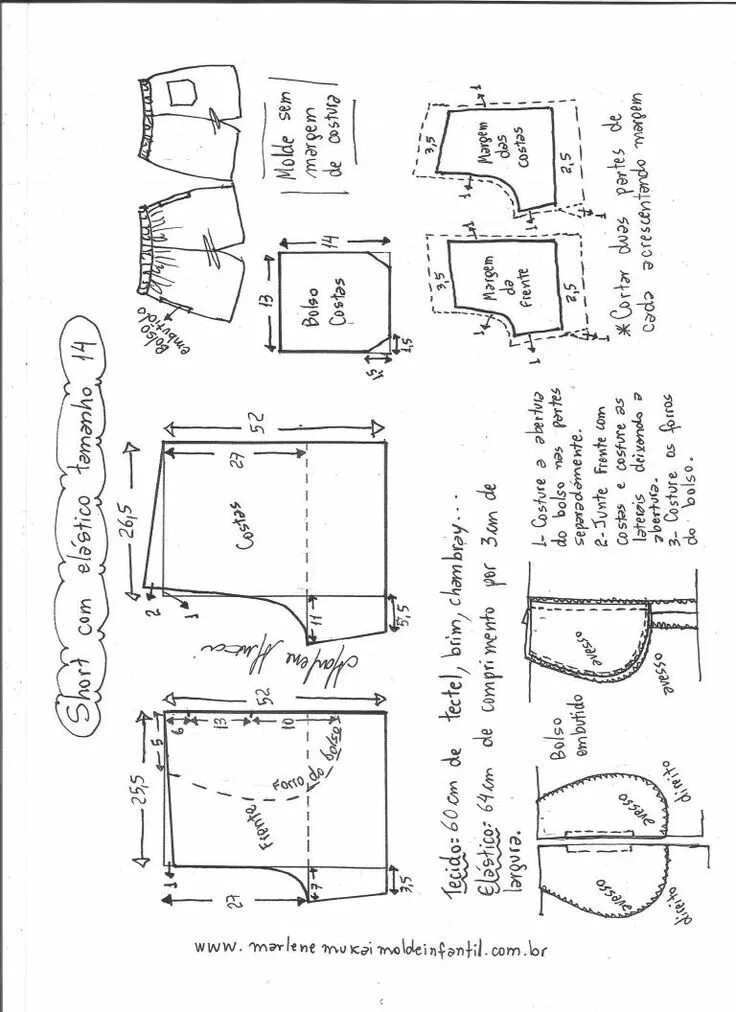 Short com elástico tamanho 14
Bolso
embutido
Molde sem
margem
de costura
13
14
Bolso
Costas
1,5
1,5
3,5
1
Margem
das
costas
2,5
1
1
1
3,5
Margem
da
frente
2,5
1
1
1
*Cortar duas partes de
cada acrescentando margem
25,5
5
52
6
13
10
Forro do bolso
Frente
1
27
7
3,5
26,5
52
27
Costas
2
1
11
5,5
Marlene Mukai
Tecido: 60 cm de tectel, brim, chambray...
Elástico: 64 cm de comprimento por 3 cm de
largura.
Bolso
embutido
avesso
direito
avesso
direito
avesso
avesso
1- Costure a abertura
do bolso nas partes
separadamente.
2- Junte frente com
costas e costure as
laterais deixando a
abertura.
3- Costure os forros
do bolso.
www.marlenemukaimoldeinfantil.com.br